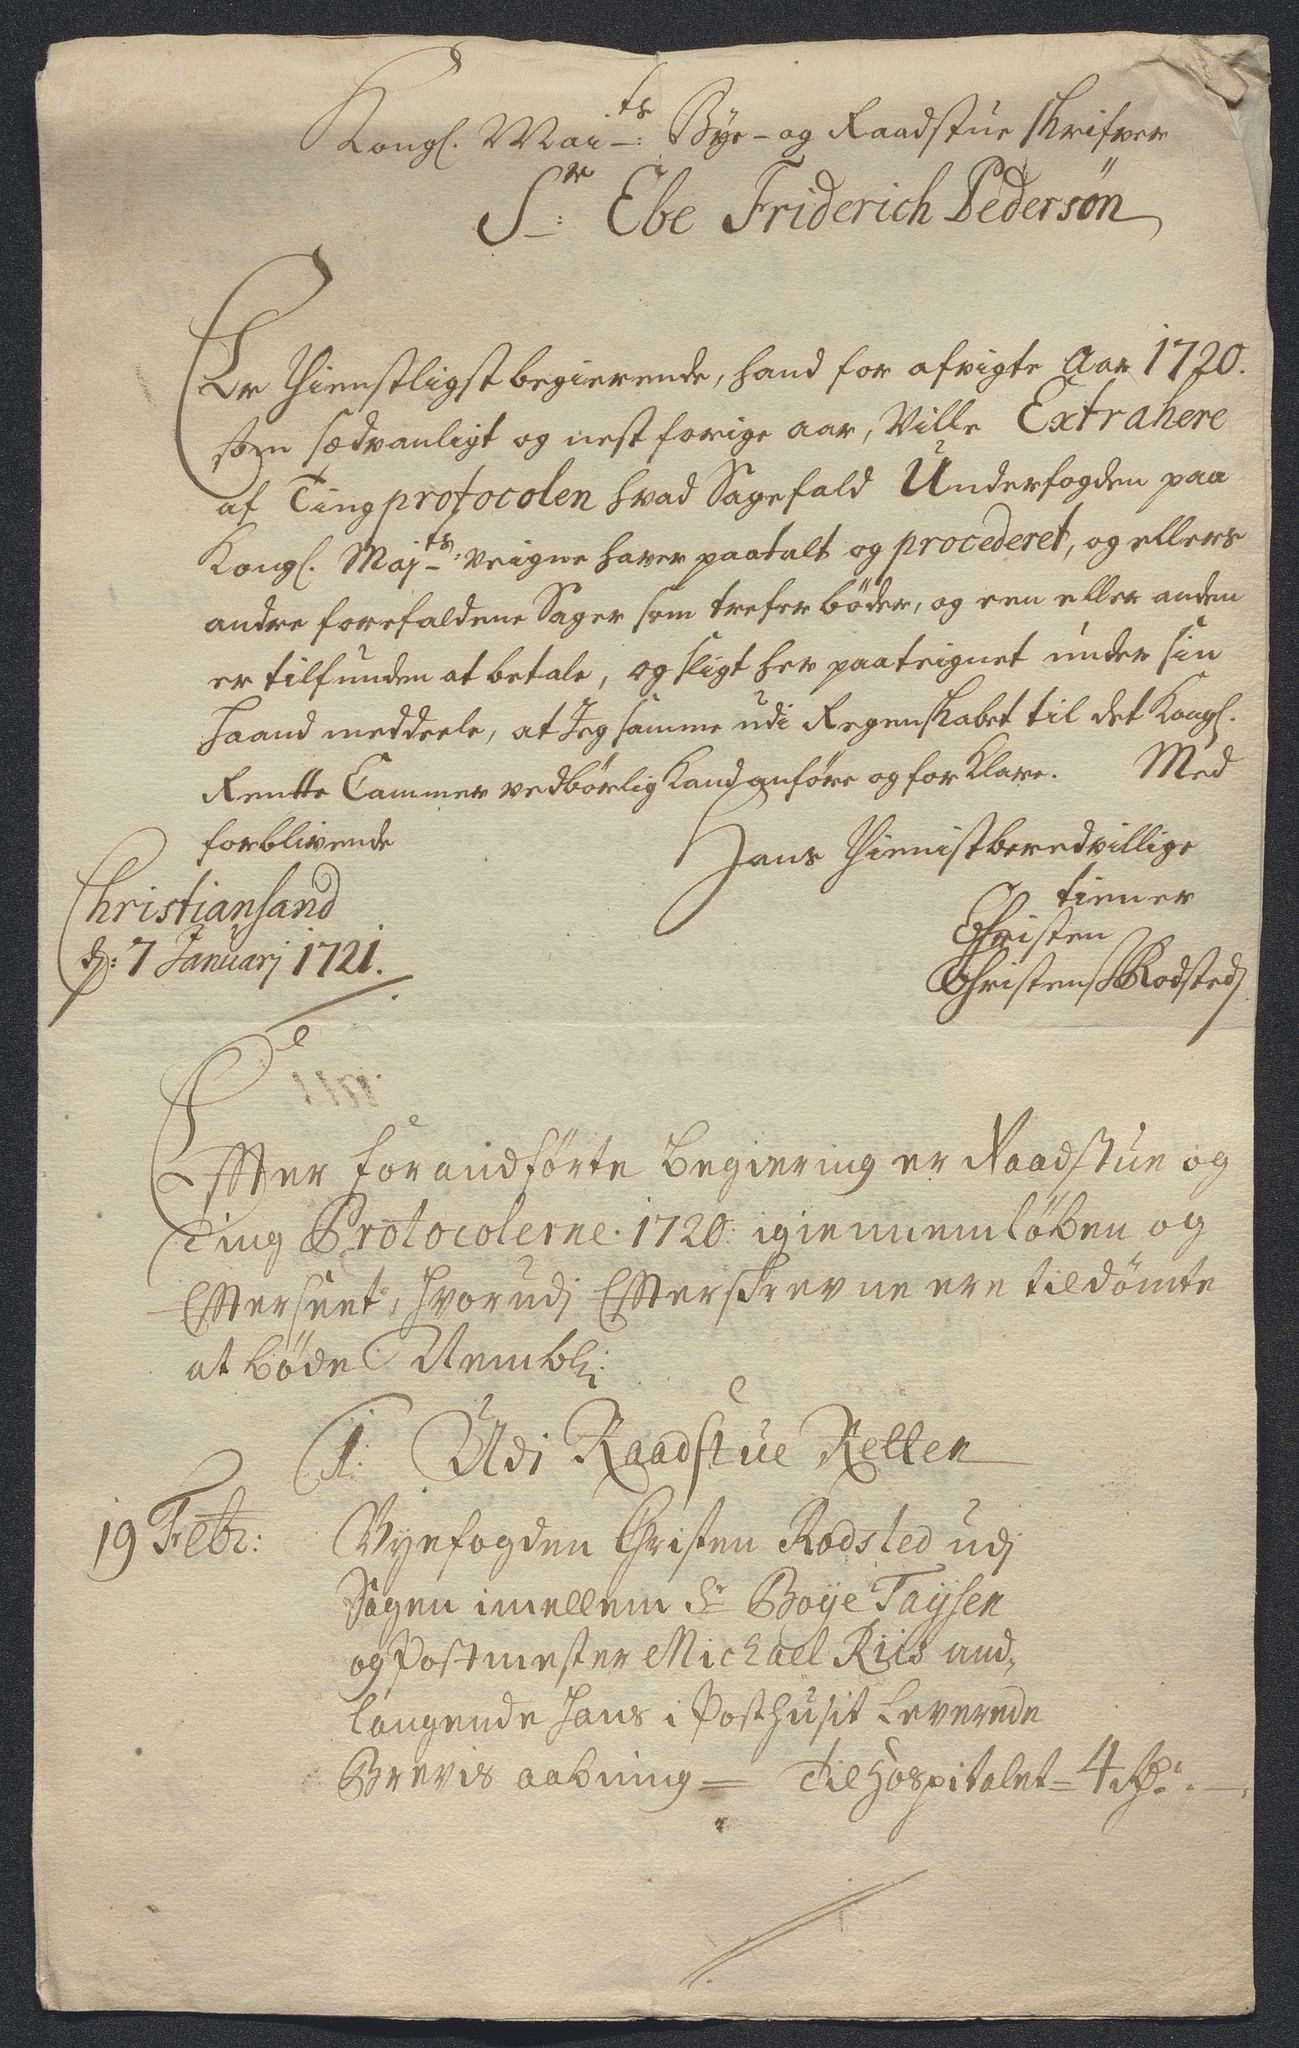 Kongl. Mai:ts Bye- og Raadstue skrifver
Sr: Ebe Friderich Pedersøn
Er thienstligst begierende, hand for afvigte Aar 1720.
som sædvanligt og nest forige aar, Ville Extrahere
af Tingprotocolen hvad Sagefald Underfogden paa
Kongl. Maj:ts veigne haver paatalt og procederet, og ellers
andre forefaldene Sager som trefer bøder, og een eller anden
er tilfunden at betale, og sligt her paateignet under sin
haand meddeele, at Jeg samme udi Regenskabet til det Kongl.
Rentte Cammer vedbørlig kand anføre og forklare. Med
forblivende
Hans thienistberedvillige
tiener
Christiansand
d: 7 Januarj 1721.
Christen
Christens: Rodsted
Effter forandførte begiering er Raadstue og
Ting Protocolerne 1720: igiennemløben og
Effterseet, hvorudj Effterskrevne ere tildømte
at bøde Nembl:
1. Udi Raadstue Retten
19 Febr: Byefogden Christen Rodsted udj
Sagen imellem Sr Boye Taysen
og Postmester Michael Riis and,
langende hans i Posthusit Leverede
Brevis aabning = til Hospitalet = 4 Rdr.